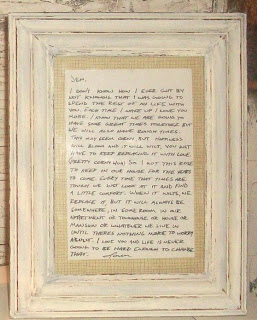 JEN,
I DON'T KNOW HOW I EVER GOT BY
NOT KNOWING THAT I WAS GOING TO
SPEND THE REST OF MY LIFE WITH
YOU. EACH TIME I WAKE UP I LOVE YOU
MORE. I KNOW THAT WE ARE GOING TO
HAVE SOME GREAT TIMES TOGETHER BUT
WE WILL ALSO HAVE ROUGH TIMES.
THIS MAY SEEM GRIM BUT HAPPINESS
WILL BLOOM AND IT WILL WILT, YOU JUST
HAVE TO KEEP REPLACING IT WITH LOVE.
(PRETTY CORNY HUH) SO I PUT THIS ROSE
TO KEEP IN OUR HOUSE FOR THE YEARS
TO COME. EVERY TIME THAT TIMES ARE
TOUGH WE JUST LOOK AT IT AND FIND
A LITTLE COMFORT. WHEN IT WILTS, WE
REPLACE IT, BUT IT WILL ALWAYS BE
SOMEWHERE, IN SOME ROOM, IN OUR
APARTMENT OR TOWNHOUSE OR HOUSE OR
MANSION OR WHATEVER WE LIVE IN
UNTIL THERE'S NOTHING MORE TO WORRY
ABOUT. I LOVE YOU AND LIFE IS NEVER
GOING TO BE HARD ENOUGH TO CHANGE
THAT.